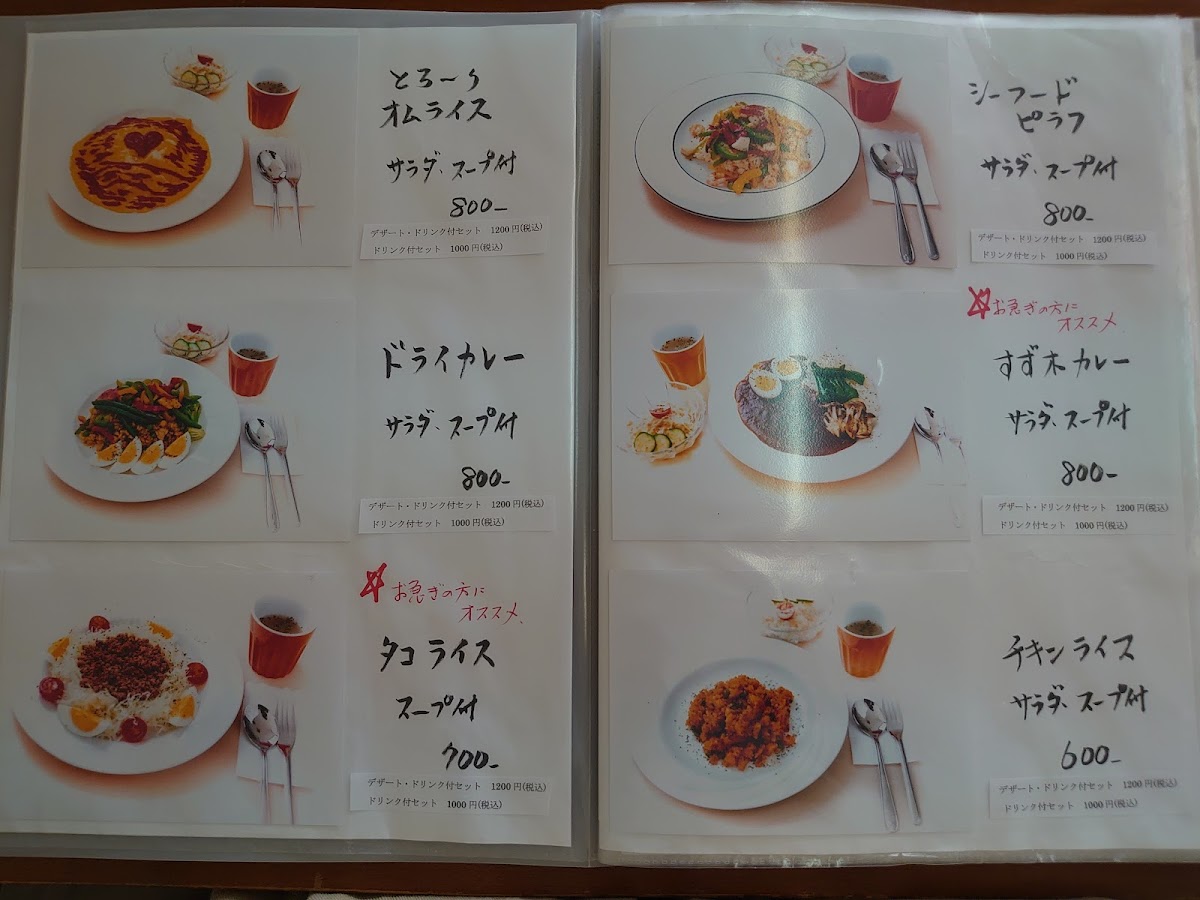 とろ〜り
オムライス
サラダ、スープ付
800-
デザート・ドリンク付セット 1200円(税込)
ドリンク付セット 1000円(税込)
ドライカレー
サラダ、スープ付
800-
デザート・ドリンク付セット 1200円(税込)
ドリンク付セット 1000円(税込)
☆お急ぎの方に
オススメ、
タコライス
スープ付
700-
デザート・ドリンク付セット 1200円(税込)
ドリンク付セット 1000円(税込)
シーフード
ピラフ
サラダ、スープ付
800-
デザート・ドリンク付セット 1200円(税込)
ドリンク付セット 1000円(税込)
☆お急ぎの方に
オススメ
すず木カレー
サラダ、スープ付
800-
デザート・ドリンク付セット 1200円(税込)
ドリンク付セット 1000円(税込)
チキンライス
サラダ、スープ付
600-
デザート・ドリンク付セット 1200円(税込)
ドリンク付セット 1000円(税込)